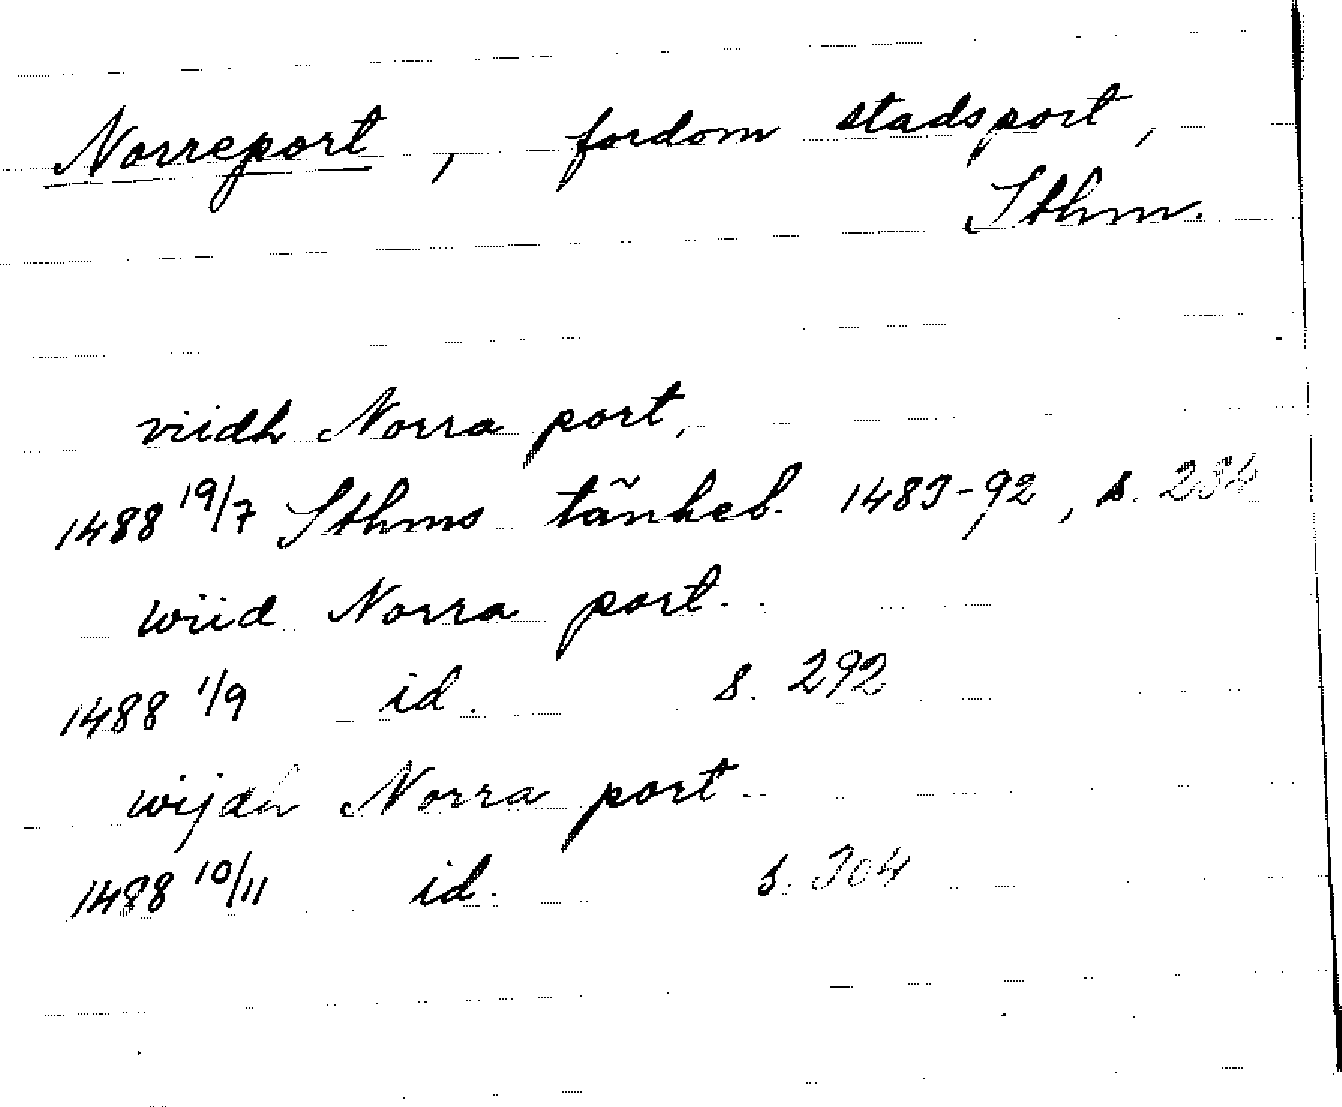 Norreport, fordom stadsport,
Sthm.
viidh Norra port,
1488 19/7 Sthms tänkeb. 1483-92, s. 284
wiid Norra port.
1488 1/9 id. s. 292
wijdh Norra port.
1488 10/11 id. s. 304